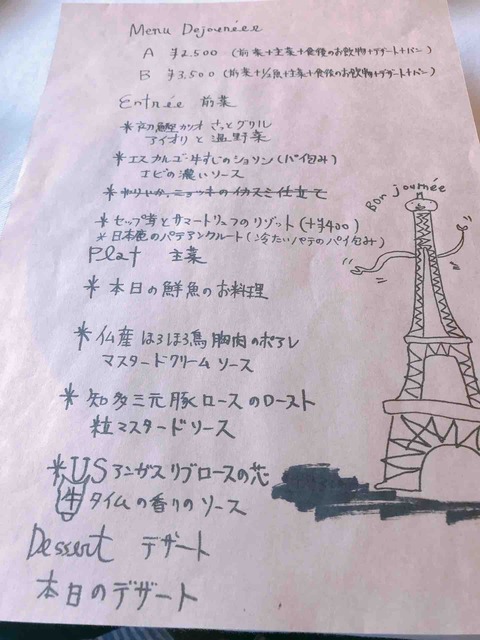 Menu Dejounéee
A ¥2.500 (前菜+主菜+食後のお飲物+デザート+パン)
B ¥3,500 (前菜+½魚+主菜+食後のお飲物+デザート+パン)
Entrée 前菜
*初鰹カツオ さっとグリル
アイオリと 温野菜
*エスカルゴ・牛すじのショソン(パイ包み)
エビの濃いソース
ニョッキのイカスミ仕立て
*セップ茸とサマートリュフのリゾット(+¥400)
*日本鹿のパテアンクルート(冷たいパテのパイ包み)
Plat 主菜
*本日の鮮魚のお料理
*仏産ほろほろ鳥胸肉のポアレ
マスタードクリームソース
*知多三元豚ロースのロースト
粒マスタードソース
*US アンガスリブロースの芯
牛 タイムの香りのソース
Dessert デザート
本日のデザート
Bon journée